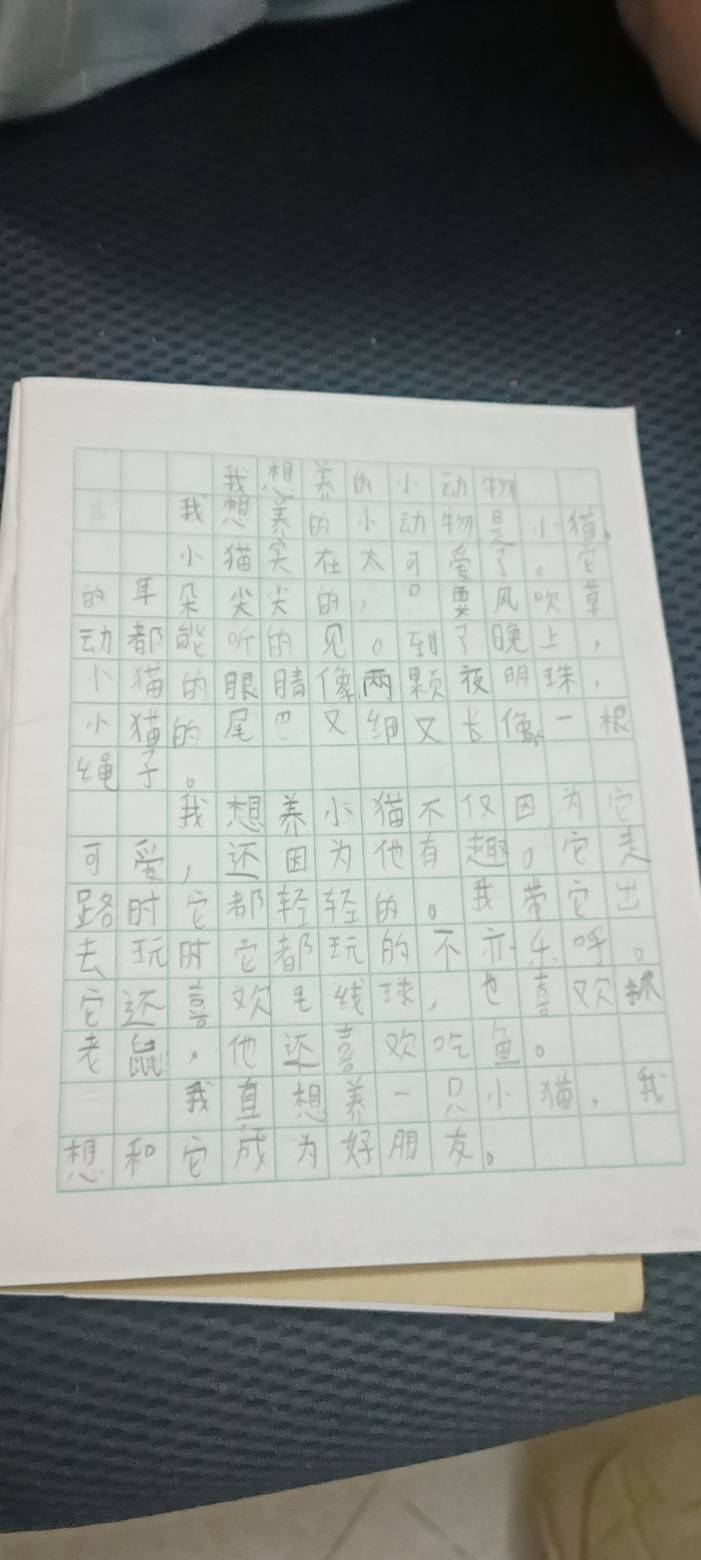 我想养的小动物
我想养的小动物是小猫。
小猫实在太可爱了。它
的耳朵尖尖的，只要风吹草
动都能听的见。到了晚上，
小猫的眼睛像两颗夜明珠，
小猫的尾巴又细又长像一根
绳子。
我想养小猫不仅因为它
可爱，还因为他有趣。它走
路时它都轻轻的。我带它出
去玩时它都玩的不亦乐呼。
它还喜欢毛线球，也喜欢
老鼠，他还喜欢吃鱼。
我真想养一只小猫，我
想和它成为好朋友。